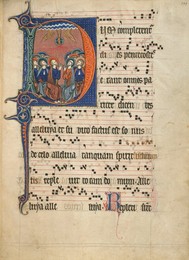 DUM complerent
dies penthecostes
erant omnes pa
riter dicen tes
alleluia et su bito factus est so nus
de celo alleluia tanquam spiritus
reple uit to tam do mum Alle
luya alle luya Repleti sunt